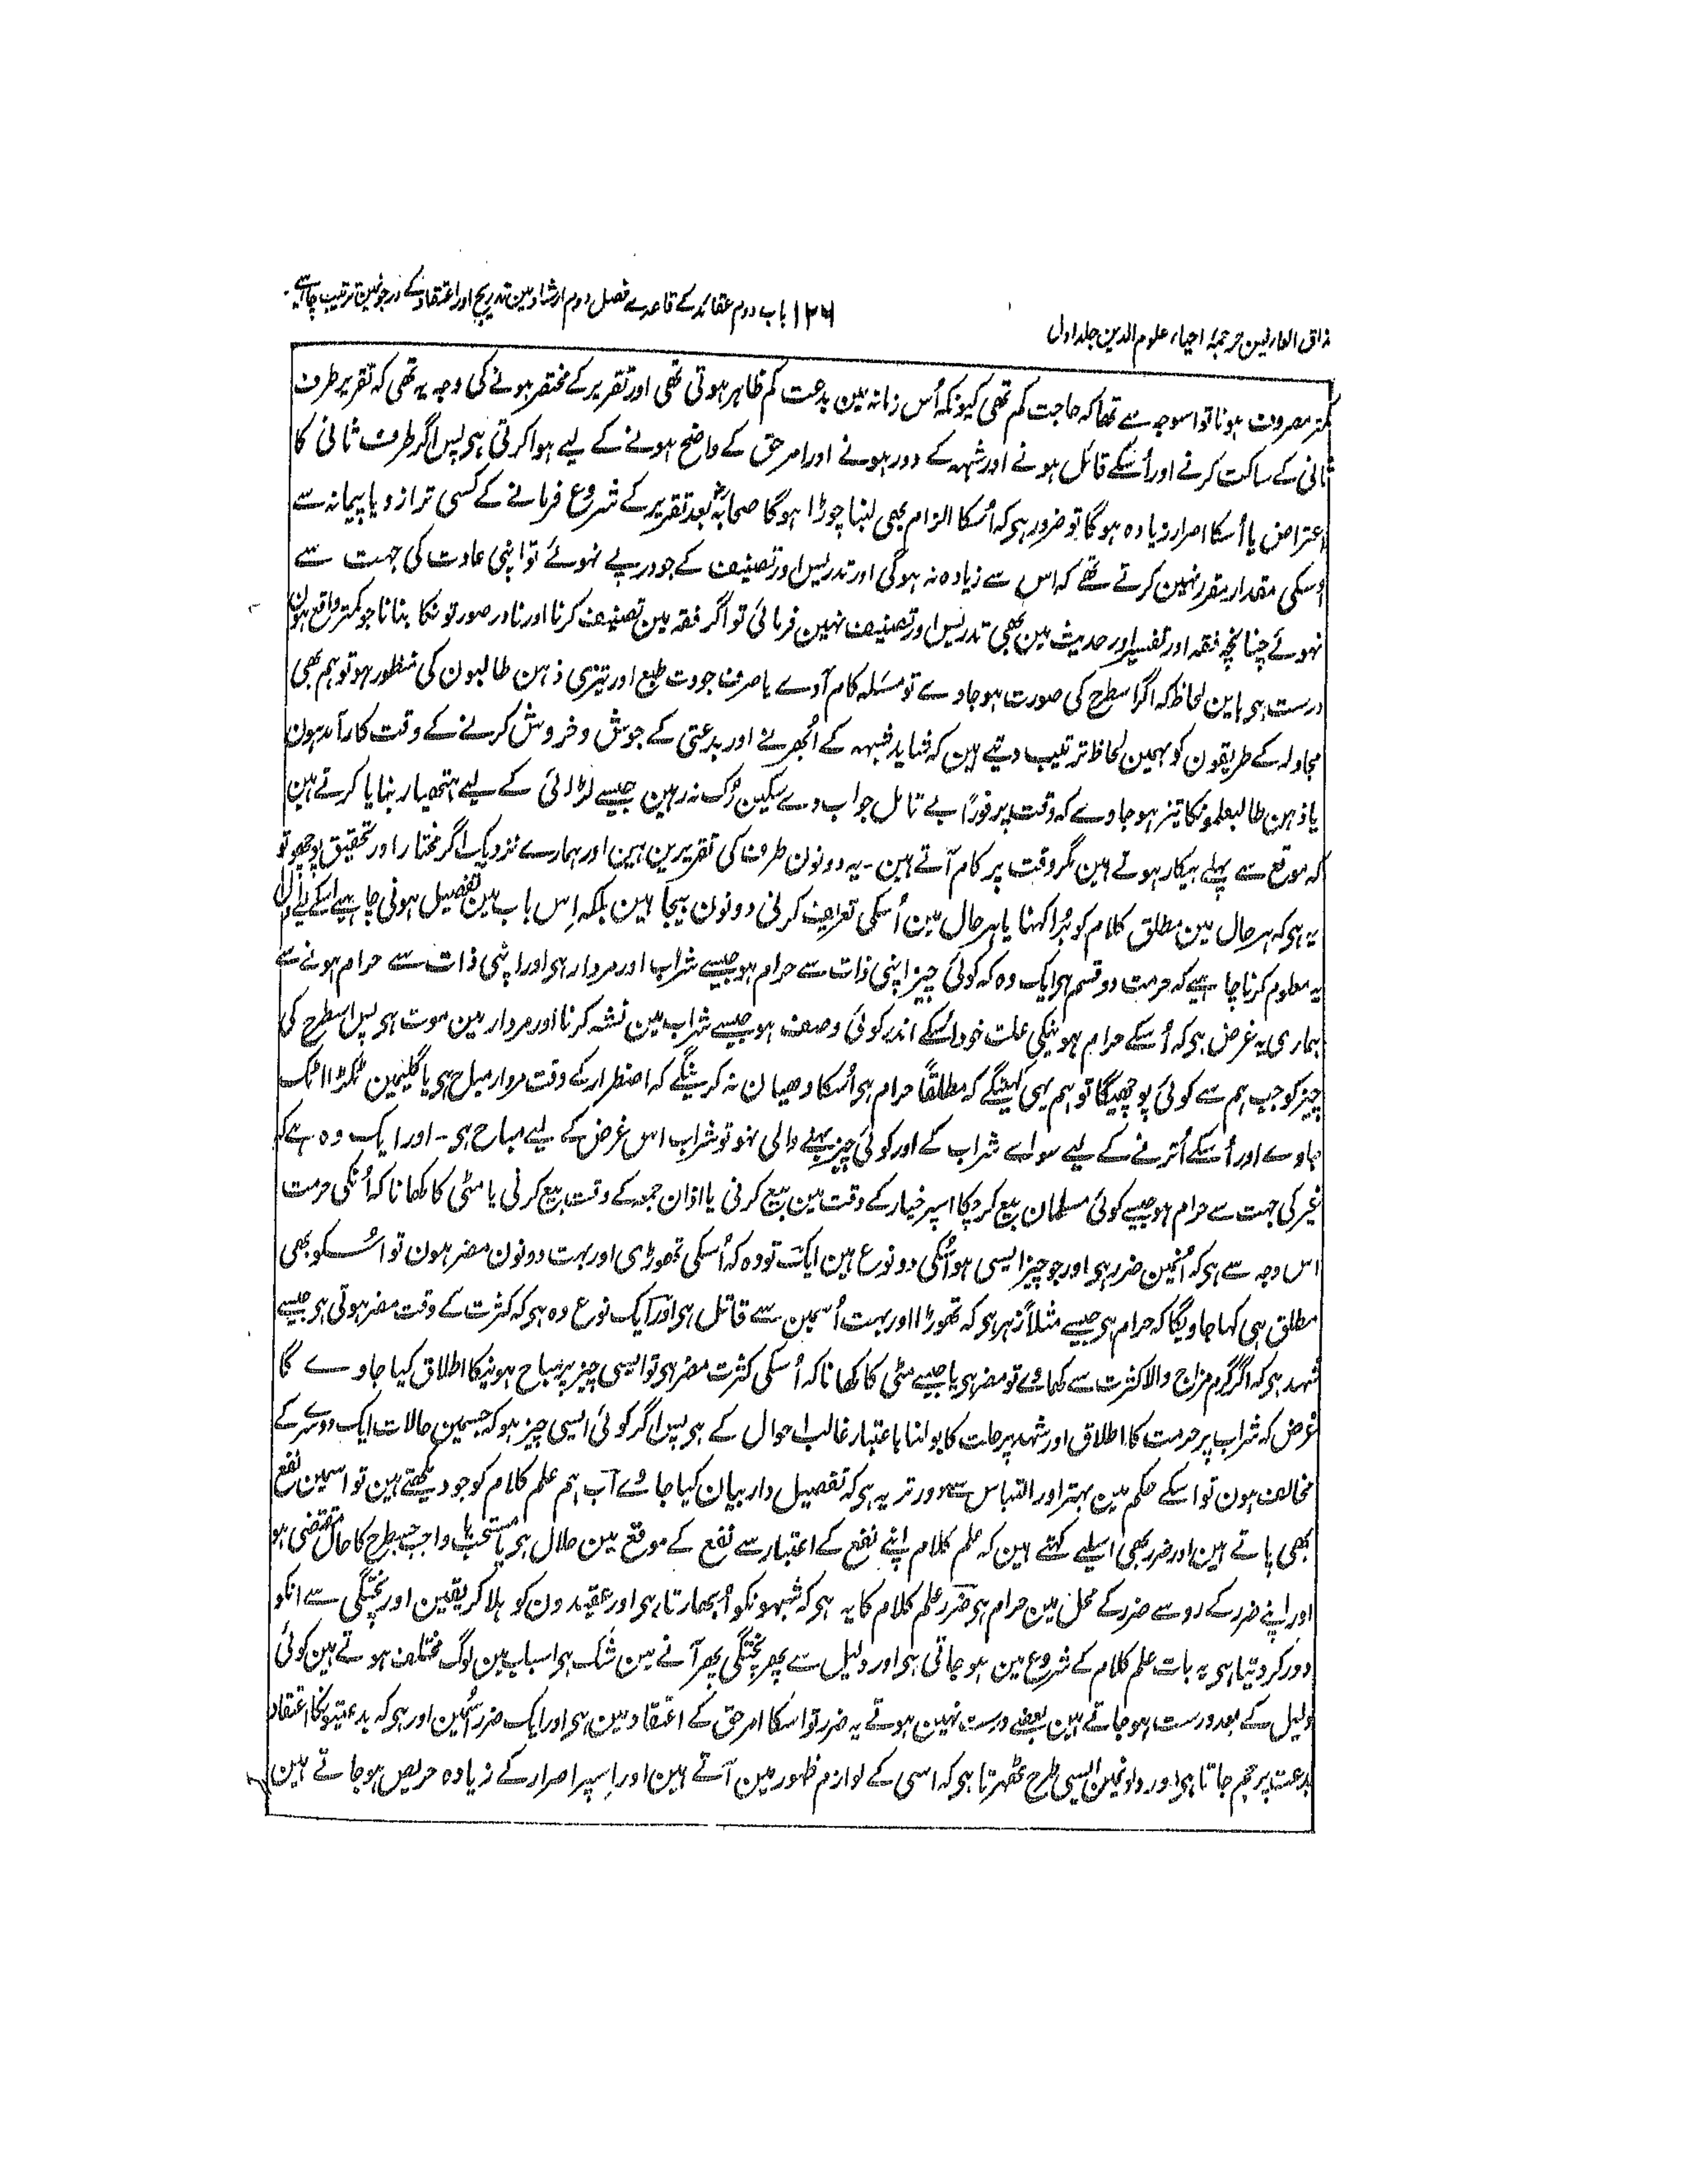 مذاق العارفین ترجمۂ احیاء علوم الدین جلد اول
۱۲۶ باب دوم عقائد کے قاعدے فصل دوم ارشاد مین تدریج اور اعتقاد کے درجونمین ترتیب چاہیے
کمتر مصروف ہونا تو اسوجہ سے تھا کہ حاجت کم تھی کیونکہ اُس زمانہ مین بدعت کم ظاہر ہوتی تھی اور تقریر کے مختصر ہونے کی وجہ یہ تھی کہ تقریر طرف
ثانی کے ساکت کرنے اور اُسکے قائل ہونے اور شبہہ کے دور ہونے اور امر حق کے واضح ہونے کے لیے ہوا کرتی ہی پس اگر طرف ثانی کا
اعتراض یا اُسکا اصرار زیادہ ہوگا تو ضرور ہی کہ اُسکا الزام بھی لنبا چوڑا ہوگا صحابہؓ بعد تقریر کے شروع فرمانے کے کسی ترازو یا پیمانہ سے
اُسکی مقدار مقرر نہین کرتے تھے کہ اس سے زیادہ نہ ہوگی اور تدریس اور تصنیف کے جو درپے نہوئے تو اپنی عادت کی جہت سے
نہوئے چنانچہ فقہ اور تفسیر اور حدیث مین بھی تدریس اور تصنیف نہین فرمائی تو اگر فقہ مین تصنیف کرنا اور نادر صورتونکا بنانا جو کمتر واقع ہون
درست ہی باین لحاظ کہ اگر اسطرح کی صورت ہو جاوے تو مسئلہ کام آوے یا صرف جودت طبع اور تیزی ذہن طالبون کی منظور ہو تو ہم بھی
مجادلہ کے طریقون کو بہمین لحاظ ترتیب دیتے ہین کہ شاید شبہہ کے اُبھرنے اور بدعتی کے جوش و خروش کرنے کے وقت کارآمد ہون
یا ذہن طالبعلمونکا تیز ہو جاوے کہ وقت پر فوراً بے تامل جواب دے سکین رُک نہ رہین جیسے لڑائی کے لیے ہتھیار بنایا کرتے ہین
کہ موقع سے پہلے بیکار ہوتے ہین مگر وقت پر کام آتے ہین ۔ یہ دونون طرف کی تقریرین ہین اور ہمارے نزدیک اگر مختار اور تحقیق پوچھو تو
یہ ہی کہ ہر حال مین مطلق کلام کو بُرا کہنا یا ہر حال مین اُسکی تعریف کرنی دونون بیجا ہین بلکہ اِس باب مین تفصیل ہونی چاہیے اسکے لیے اول
یہ معلوم کرنا چاہیے کہ حرمت دو قسم ہی ایک وہ کہ کوئی چیز اپنی ذات سے حرام ہو جیسے شراب اور مردار ہی اور اپنی ذات سے حرام ہونے سے
ہماری یہ غرض ہی کہ اُسکے حرام ہونیکی علت خود اُسکے اندر کوئی وصف ہو جیسے شراب مین نشہ کرنا اور مردار مین موت ہی پس اسطرح کی
چیز کو جب ہم سے کوئی پوچھیگا تو ہم یہی کہینگے کہ مطلقاً حرام ہی اُسکا دھیان نہ کرینگے کہ اضطرار کے وقت مردار مباح ہی یا گلیمین ٹکڑا اٹک
جاوے اور اُسکے اُترنے کے لیے سواے شراب کے اور کوئی چیز بہنے والی نہو تو شراب اس غرض کے لیے مباح ہی ۔ اور ایک وہ ہے کہ
غیر کی جہت سے حرام ہو جیسے کوئی مسلمان بیع کر چکا اسپر خیار کے وقت مین بیع کرنی یا اذان جمعہ کے وقت بیع کرنی یا مٹی کا کھانا کہ اُنکی حرمت
اس وجہ سے ہی کہ اُنمین ضرر ہی اور جو چیز ایسی ہو اُسکی دو نوع ہین ایک تو وہ کہ اُسکی تھوڑی اور بہت دونون مضر ہون تو اُسکو بھی
مطلق ہی کہا جاویگا کہ حرام ہی جیسے مثلاً زہر ہی کہ تھوڑا اور بہت اُسمین سے قاتل ہی اور ایک نوع وہ ہی کہ کثرت کے وقت مضر ہوتی ہی جیسے
شہد ہی کہ اگر گرم مزاج والا کثرت سے کھاوے تو مضر ہی یا جیسے مٹی کا کھانا کہ اُسکی کثرت مضر ہی تو ایسی چیز پر مباح ہونیکا اطلاق کیا جاوے گا
غرض کہ شراب پر حرمت کا اطلاق اور شہد پر حلت کا بولنا باعتبار غالب احوال کے ہی پس اگر کوئی ایسی چیز ہو کہ جسمین حالات ایک دوسرے کے
مخالف ہون تو اسکے حکم مین بہتر اور التباس سے دور تر یہ ہی کہ تفصیل وار بیان کیا جاوے اب ہم علم کلام کو جو دیکھتے ہین تو اسمین نفع
بھی پاتے ہین اور ضرر بھی اسلیے کہتے ہین کہ علم کلام اپنے نفع کے اعتبار سے نفع کے موقع مین حلال ہی یا مستحب یا واجب جسطرح کا حال مقتضی ہو
اور اپنے ضرر کے رو سے ضرر کے محل مین حرام ہی ضرر علم کلام کا یہ ہی کہ شبہونکو اُبھارتا ہی اور عقیدون کو ہلا کر یقین اور پختگی سے انکو
دور کر دیتا ہی یہ بات علم کلام کے شروع مین ہو جاتی ہی اور دلیل سے پھر پختگی پھر آنے مین شک ہی اسباب مین لوگ مختلف ہوتے ہین کوئی
دلیل کے بعد درست ہو جاتے ہین بعضے درست نہین ہوتے یہ ضرر تو اسکا امر حق کے اعتقاد مین ہی اور ایک ضرر اُسمین اور ہی کہ بدعتیونکا اعتقاد
بدعت پر جم جاتا ہی اور دلونمین ایسی طرح ٹھہرتا ہی کہ اسی کے لوازم ظہور مین آتے ہین اور اِسپر اصرار کے زیادہ حریص ہو جاتے ہین